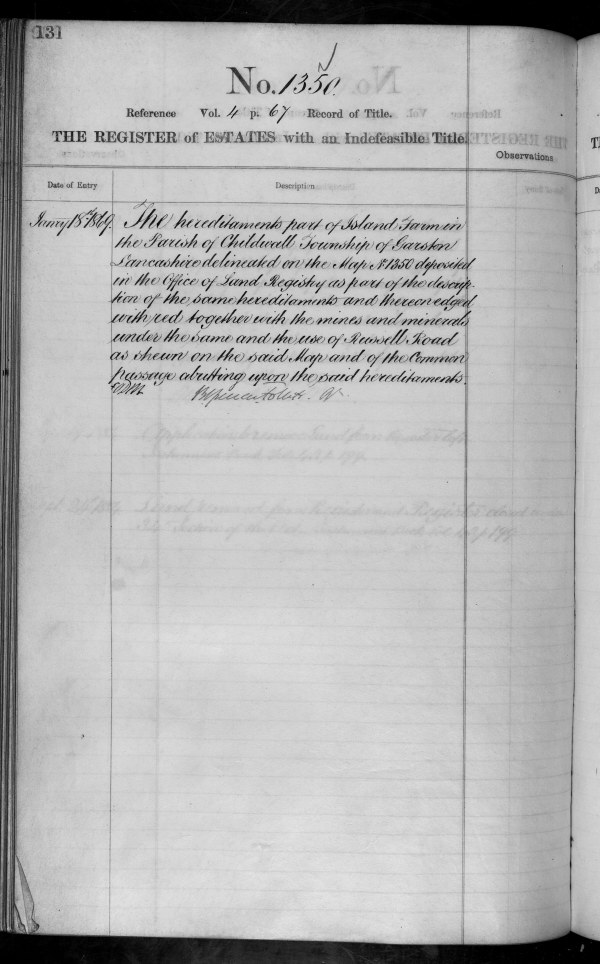 131
No. 1350.
Reference Vol. 4 p. 67 Record of Title.
THE REGISTER of ESTATES with an Indefeasible Title.
Observations
Date of Entry
Description
Janry 18th 1869. The hereditaments part of Island Farm in
the Parish of Childwall Township of Garston
Lancashire delineated on the Map No 1350 deposited
in the Office of Land Registry as part of the descrip-
tion of the same hereditaments and thereon edged
with red together with the mines and minerals
under the same and the use of Russell Road
as shewn on the said Map and of the Common
passage abutting upon the said hereditaments.